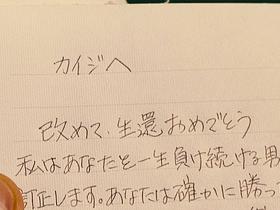 カイジへ
改めて、生還おめでとう
私はあなたを一生負け続ける男
訂正します。あなたは確かに勝っ